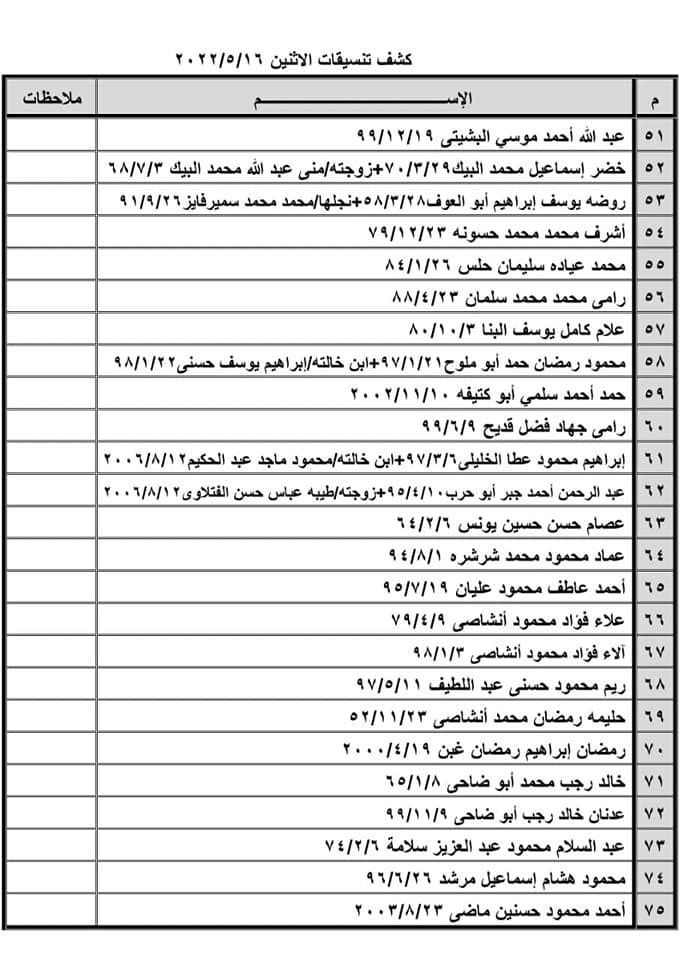 كشف تنسيقات الاثنين ٢٠٢٢/٥/١٦
م الإســـــــــم ملاحظات
٥١ عبد الله أحمد موسي البشيتى ٩٩/١٢/١٩
٥٢ خضر إسماعيل محمد البيك٧٠/٣/٢٩+زوجته/منى عبد الله محمد البيك ٦٨/٧/٣
٥٣ روضه يوسف إبراهيم أبو العوف٥٨/٣/٢٨+نجلها/محمد محمد سميرفايز٩١/٩/٢٦
٥٤ أشرف محمد محمد حسونه ٧٩/١٢/٢٣
٥٥ محمد عياده سليمان حلس ٨٤/١/٢٦
٥٦ رامى محمد محمد سلمان ٨٨/٤/٢٣
٥٧ علام كامل يوسف البنا ٨٠/١٠/٣
٥٨ محمود رمضان حمد أبو ملوح٩٧/١/٢١+ابن خالته/إبراهيم يوسف حسنى٩٨/١/٢٢
٥٩ حمد أحمد سلمي أبو كتيفه ٢٠٠٢/١١/١٠
٦٠ رامى جهاد فضل قديح ٩٩/٦/٩
٦١ إبراهيم محمود عطا الخليلى٩٧/٣/٦+ابن خالته/محمود ماجد عبد الحكيم٢٠٠٦/٨/١٢
٦٢ عبد الرحمن أحمد جبر أبو حرب٩٥/٤/١٠+زوجته/طيبه عباس حسن الفتلاوى٢٠٠٦/٨/١٢
٦٣ عصام حسن حسين يونس ٦٤/٢/٦
٦٤ عماد محمود محمد شرشره ٩٤/٨/١
٦٥ أحمد عاطف محمود عليان ٩٥/٧/١٩
٦٦ علاء فؤاد محمود أنشاصى ٧٩/٤/٩
٦٧ آلاء فؤاد محمود أنشاصى ٩٨/١/٣
٦٨ ريم محمود حسنى عبد اللطيف ٩٧/٥/١١
٦٩ حليمه رمضان محمد أنشاصى ٥٢/١١/٢٣
٧٠ رمضان إبراهيم رمضان غبن ٢٠٠٠/٤/١٩
٧١ خالد رجب محمد أبو ضاحى ٦٥/١/٨
٧٢ عدنان خالد رجب أبو ضاحى ٩٩/١١/٩
٧٣ عبد السلام محمود عبد العزيز سلامة ٧٤/٢/٦
٧٤ محمود هشام إسماعيل مرشد ٩٦/٦/٢٦
٧٥ أحمد محمود حسنين ماضى ٢٠٠٣/٨/٢٣